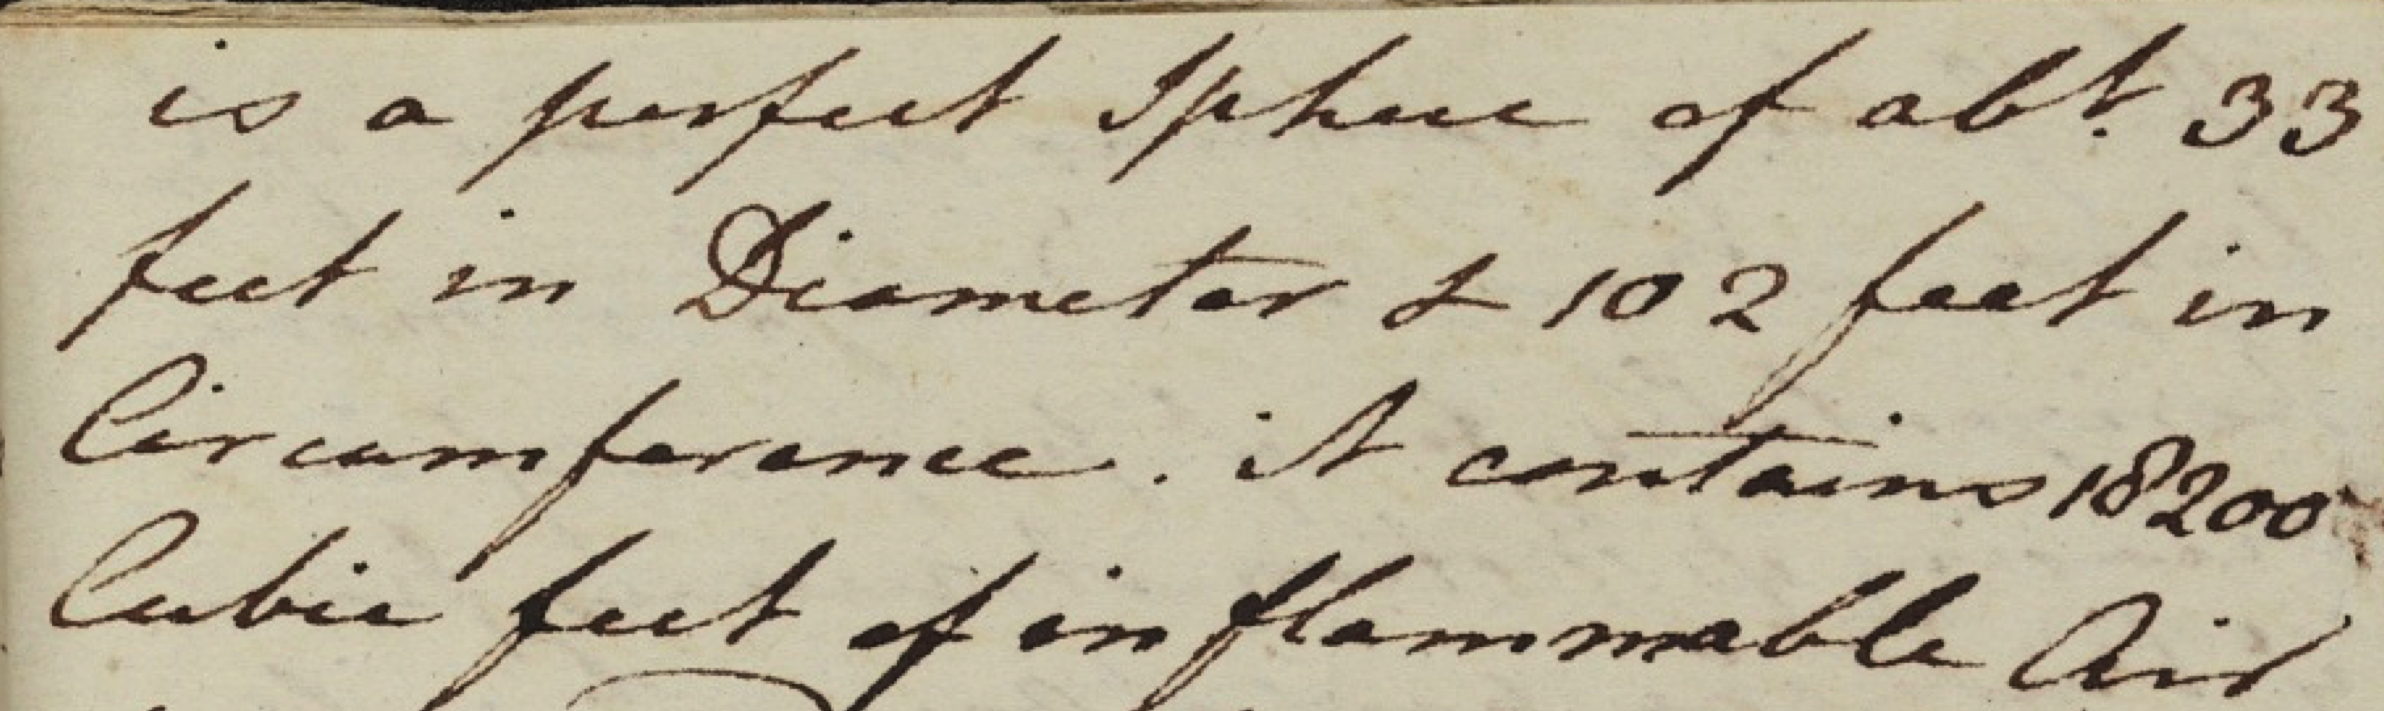 is a perfect Sphere of abt. 33
feet in Diameter & 102 feet in
Circumference. it contains 18200
Cubic feet of inflammable Air